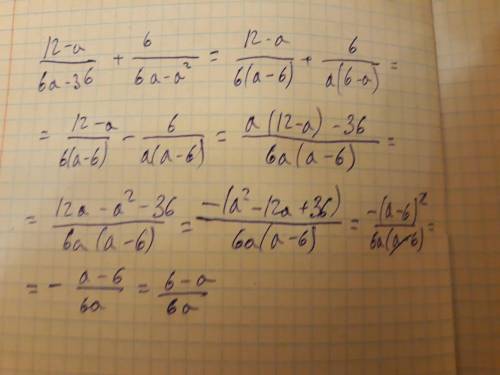 (12-a)/(6a-36) + 6/(6a-a²) = (12-a)/(6(a-6)) + 6/(a(6-a)) =
= (12-a)/(6(a-6)) - 6/(a(a-6)) = (a(12-a)-36)/(6a(a-6)) =
= (12a-a²-36)/(6a(a-6)) = (-(a²-12a+36))/(6a(a-6)) = (-(a-6)²)/(6a(a-6)) =
= - (a-6)/(6a) = (6-a)/(6a)